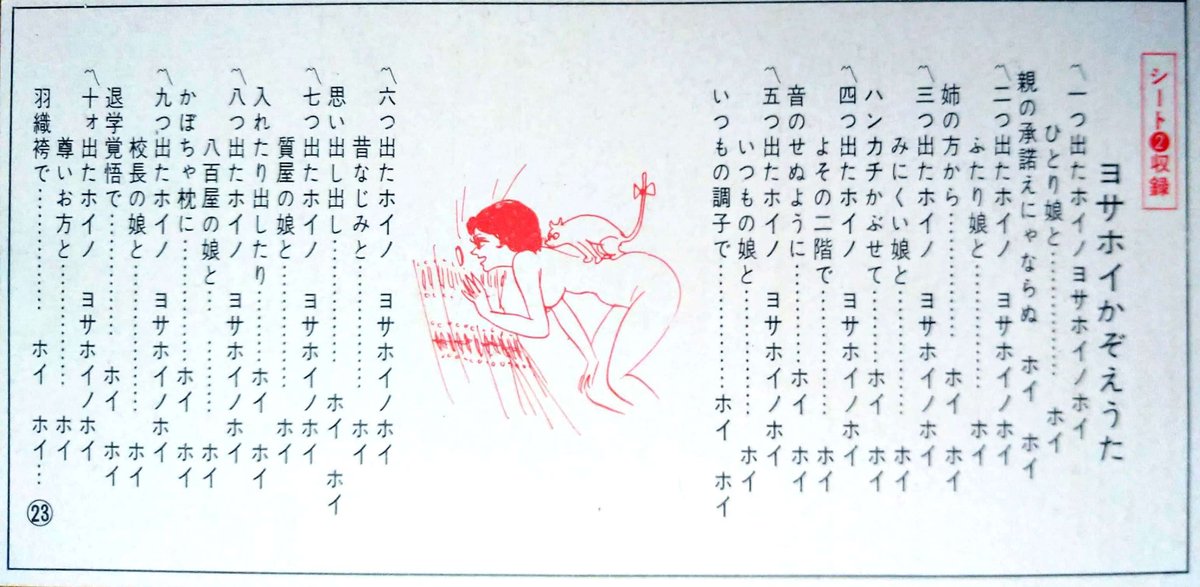 シート❷収録
ヨサホイかぞえうた
〽一つ出たホイノヨサホイノホイ
ひとり娘と…………　ホイ
親の承諾えにゃならぬ　ホイ　ホイ
〽二つ出たホイノ　ヨサホイノホイ
ふたり娘と…………　ホイ
姉の方から…………　ホイ　ホイ
〽三つ出たホイノ　ヨサホイノホイ
みにくい娘と…………　ホイ
ハンカチかぶせて………　ホイ　ホイ
〽四つ出たホイノ　ヨサホイノホイ
よその二階で…………　ホイ
音のせぬように…………　ホイ　ホイ
〽五つ出たホイノ　ヨサホイノホイ
いつもの娘と…………　ホイ
いつもの調子で…………　ホイ　ホイ
〽六つ出たホイノ　ヨサホイノホイ
昔なじみと…………　ホイ
思い出し出し…………　ホイ　ホイ
〽七つ出たホイノ　ヨサホイノホイ
質屋の娘と…………　ホイ
入れたり出したり………　ホイ　ホイ
〽八つ出たホイノ　ヨサホイノホイ
八百屋の娘と…………　ホイ
かぼちゃ枕に…………　ホイ　ホイ
〽九つ出たホイノ　ヨサホイノホイ
校長の娘と…………　ホイ
退学覚悟で…………　ホイ　ホイ
〽十ォ出たホイノ　ヨサホイノホイ
尊いお方と…………　ホイ
羽織袴で…………　ホイ　ホイ…
㉓